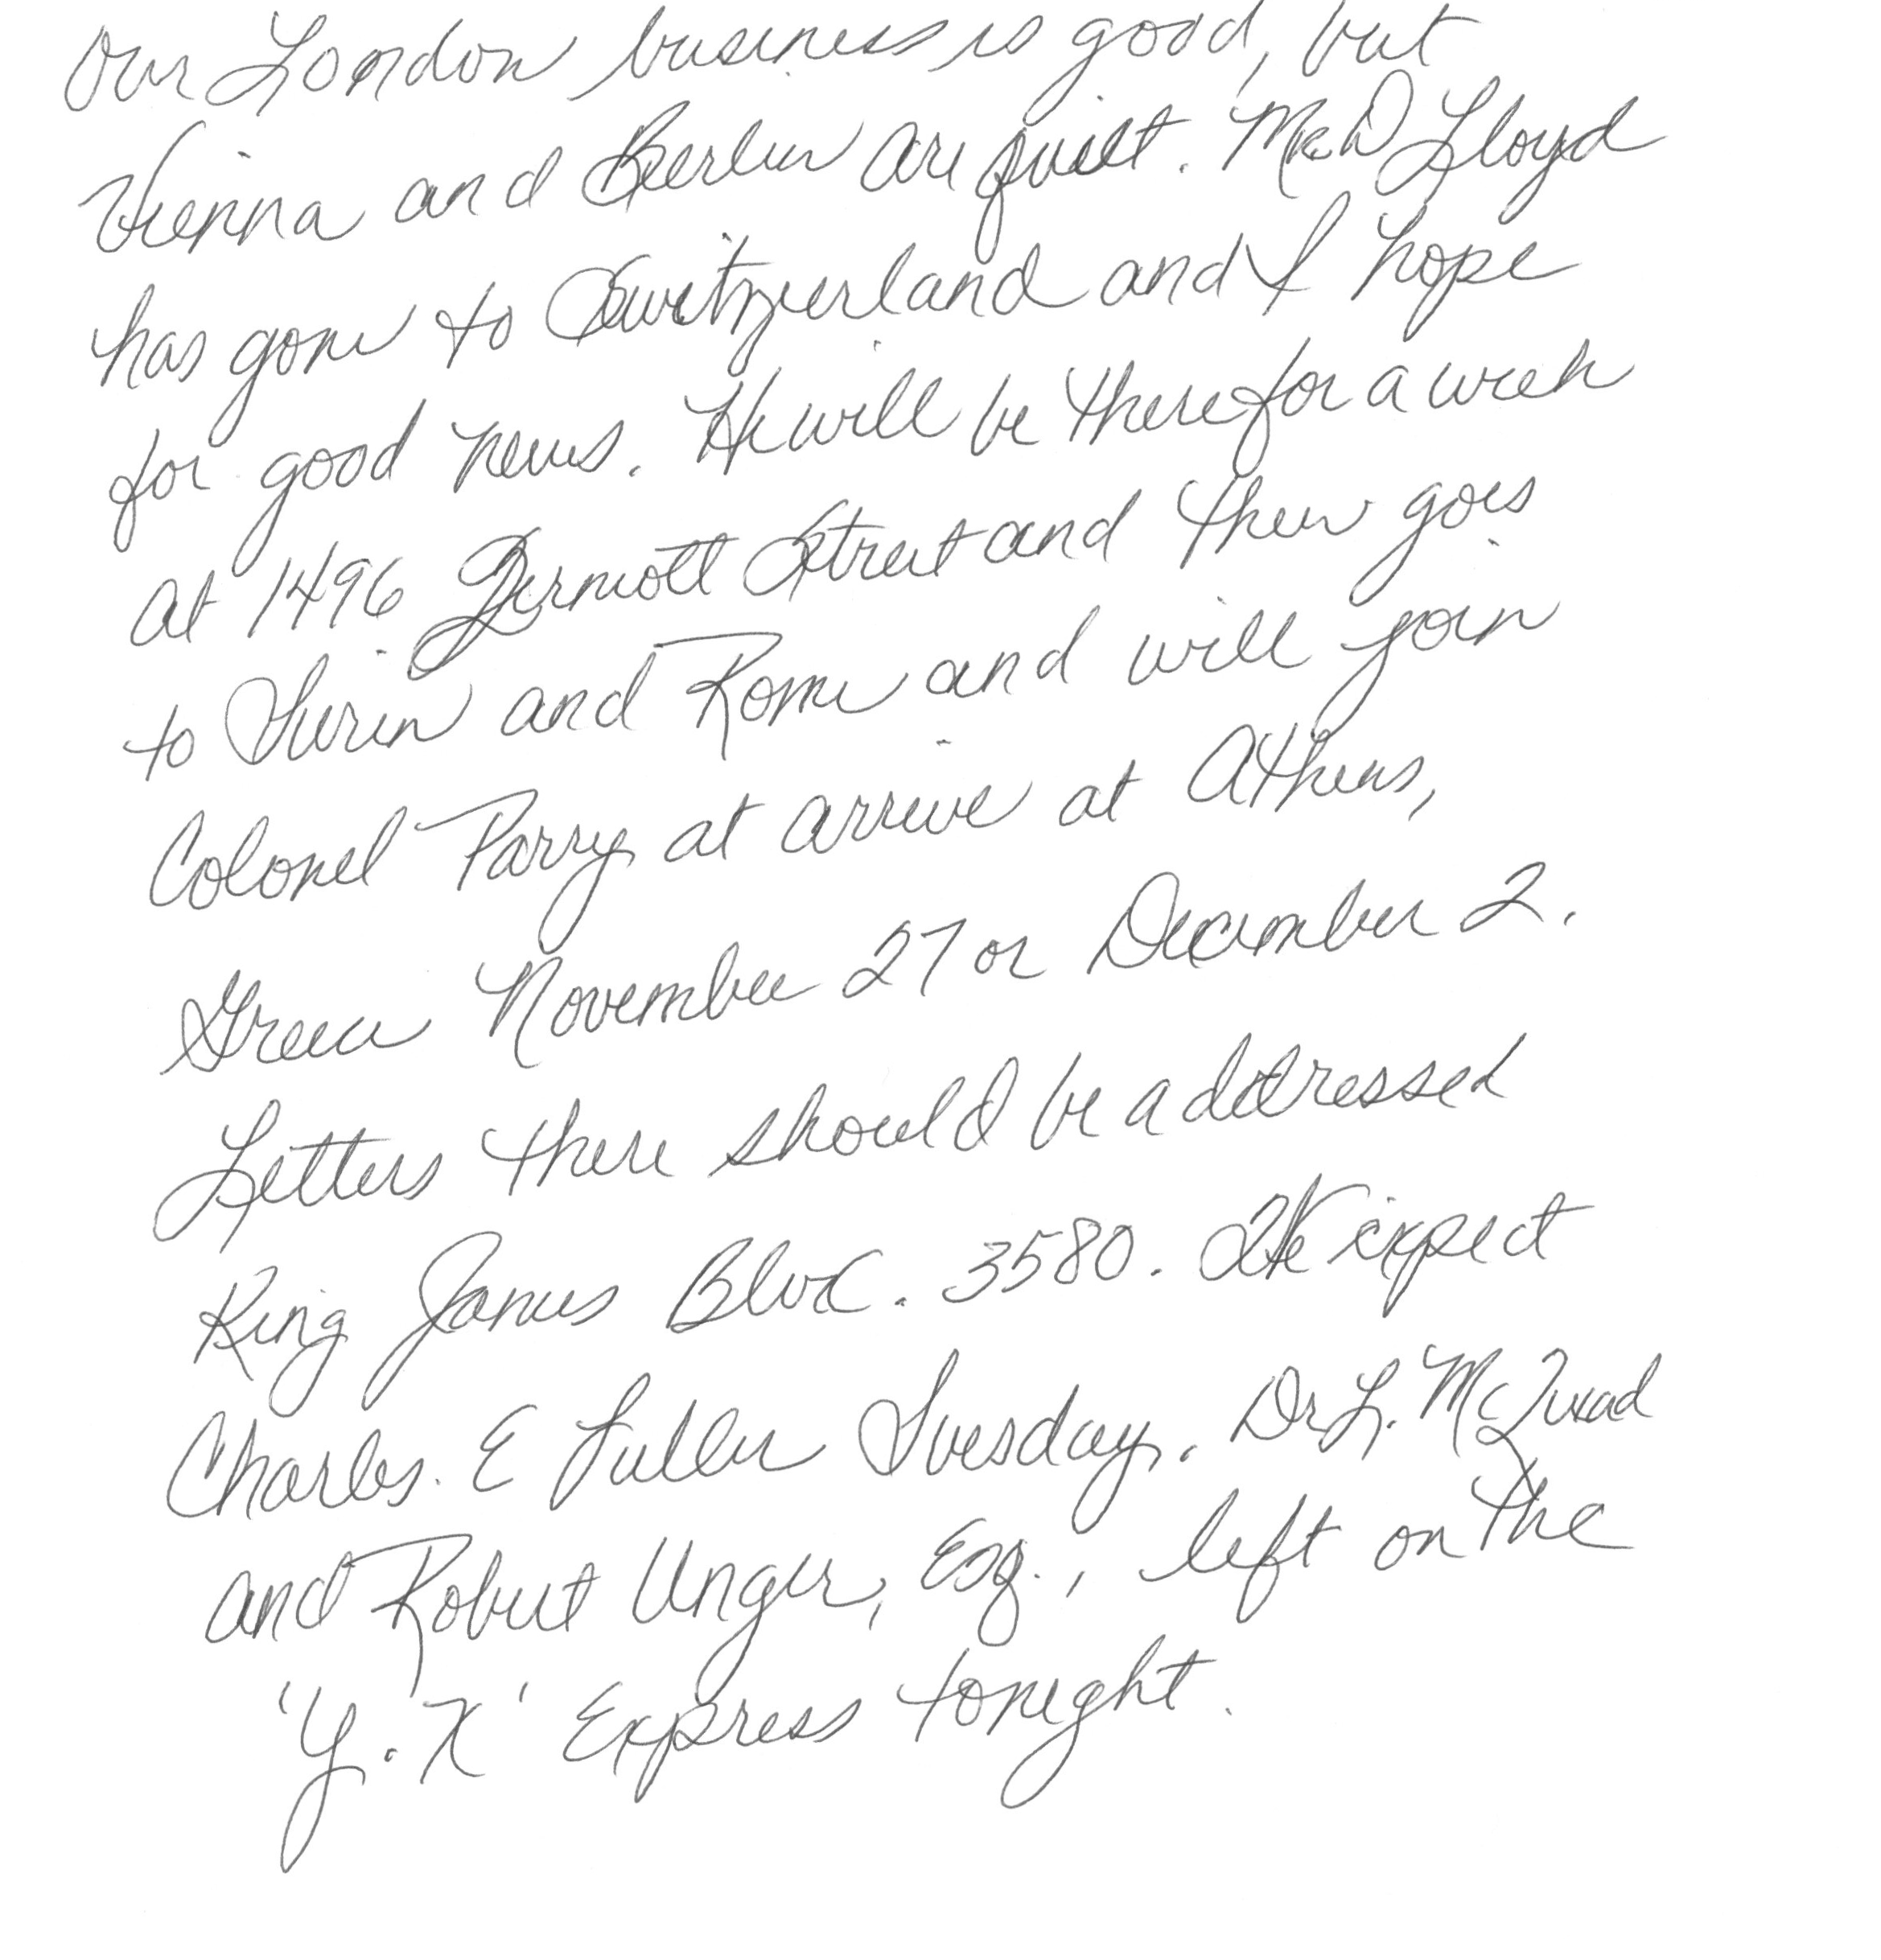 Our London business is good, but
Vienna and Berlin are quiet. Mr. D Lloyd
has gone to Switzerland and I hope
for good news. He will be there for a week
at 1496 Zermott Street and then goes
to Turin and Rome and will join
Colonel Parry at arrive at Athens,
Greece November 27 or December 2.
Letters there should be addressed
King James Blvd. 3580. We expect
Charles. E Fuller Tuesday. Dr L. McQuad
and Robert Unger, Esq., left on the
'Y. X' Express tonight.